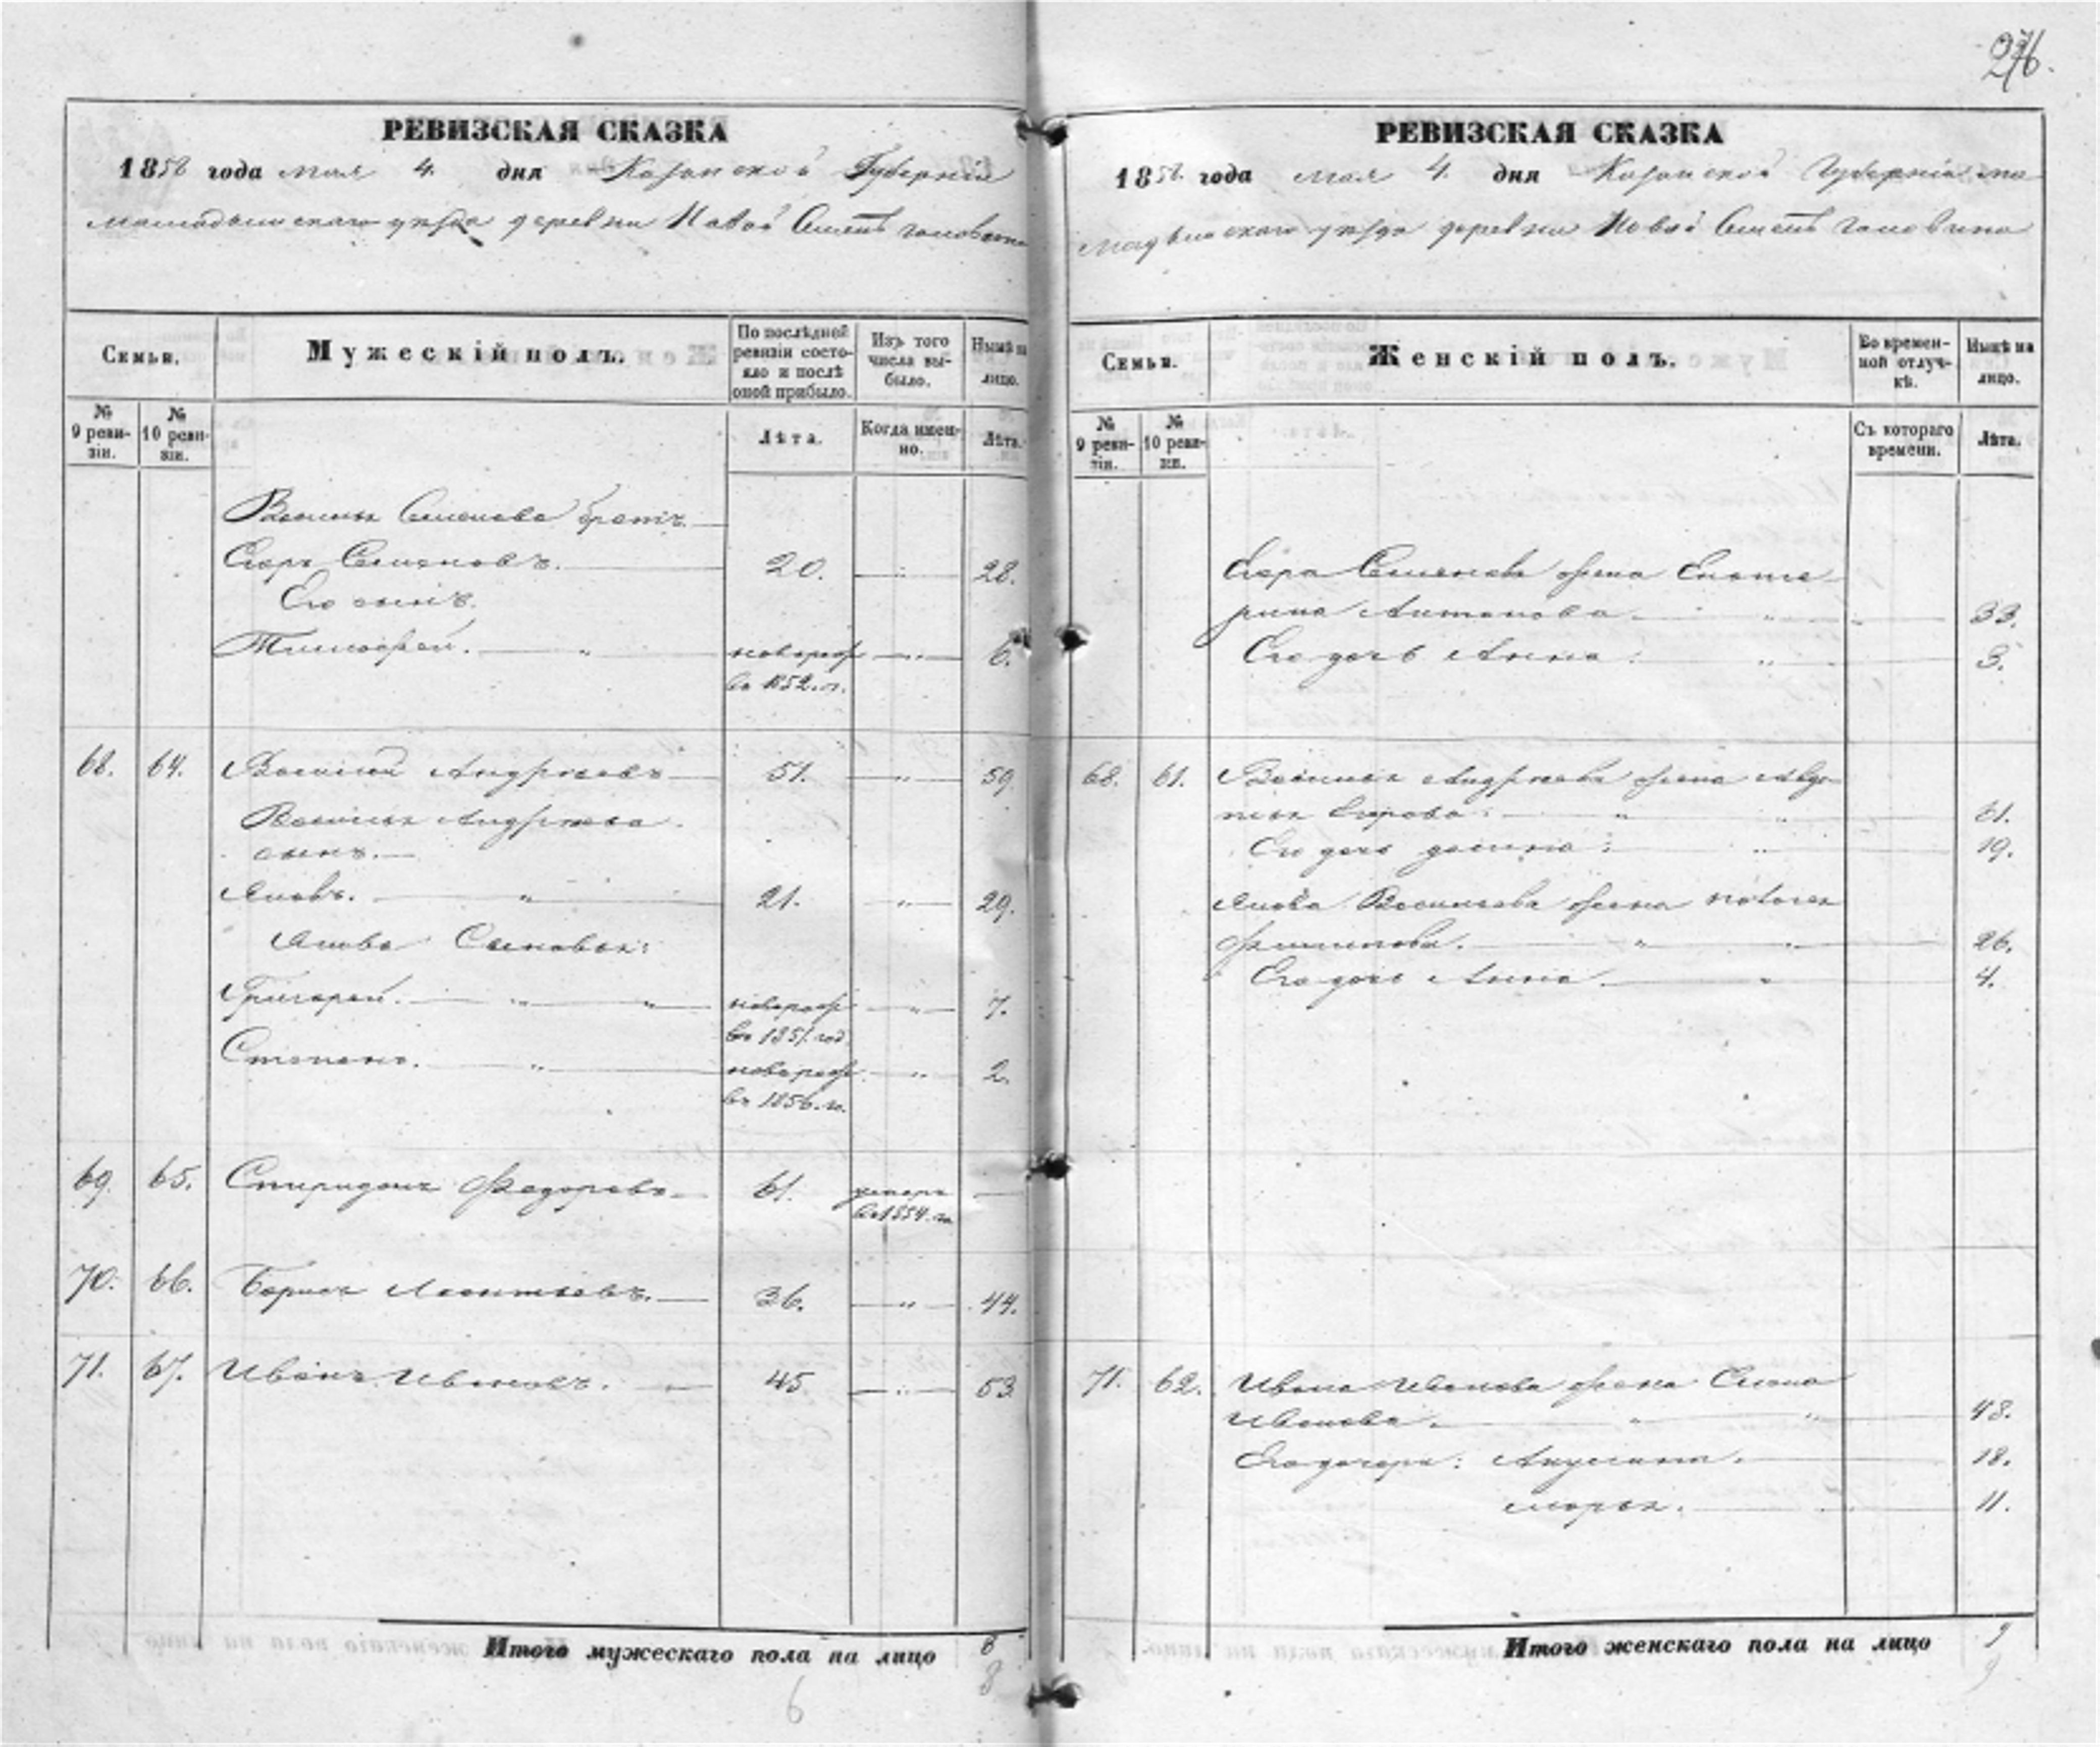 276.
РЕВИЗСКАЯ СКАЗКА
1858 года мая 4. дня Казанской Губернии
уезда деревни Новой
Семьи.
Мужескій полъ.
По послѣдней ревизіи состояло и послѣ оной прибыло.
Изъ того числа выбыло.
Нынѣ на лицо.
№ 9 ревизіи.
№ 10 ревизіи.
Лѣта.
Когда именно.
Лѣта.
Семенова братъ
Егоръ Семеновъ. 20. 28.
Его сынъ.
Тимофей. новорож 6.
въ 1852. г.
68. 64. Василій Андреевъ 51. 59.
Василья Андреева
сынъ.
Яковъ. 21. 29.
Якова Сыновья:
Григорей. новорож 7.
въ 1851. год.
Степанъ. новорож 2.
въ 1856. го.
69. 65. Спиридонъ Федоровъ 61. умеръ
въ 1854. го.
70. 66. Борисъ Леонтьевъ. 36. 44.
71. 67. Иванъ Ивановъ. 45 53
Итого мужескаго пола на лицо 8
8
6
РЕВИЗСКАЯ СКАЗКА
1858. года мая 4. дня Казанской Губерніи ма
уезда деревни Новой
Семьи.
Женскій полъ.
Во временной отлучкѣ.
Нынѣ на лицо.
№ 9 ревизіи.
№ 10 ревизіи.
Съ котораго времени.
Лѣта.
Егора Семенова жена Екате
рина Антонова 33.
Его дочь Анна: 3.
68. 61. Василья Андреева жена Авдо
тья Егорова: 61.
Его дочь 19.
Якова Васильева жена
Филипова. 26.
Его дочь Анна. 4.
71. 62. Ивана Иванова жена
Иванова. 48.
Его дочери: 18.
Марья. 11.
Итого женскаго пола на лицо 9
9